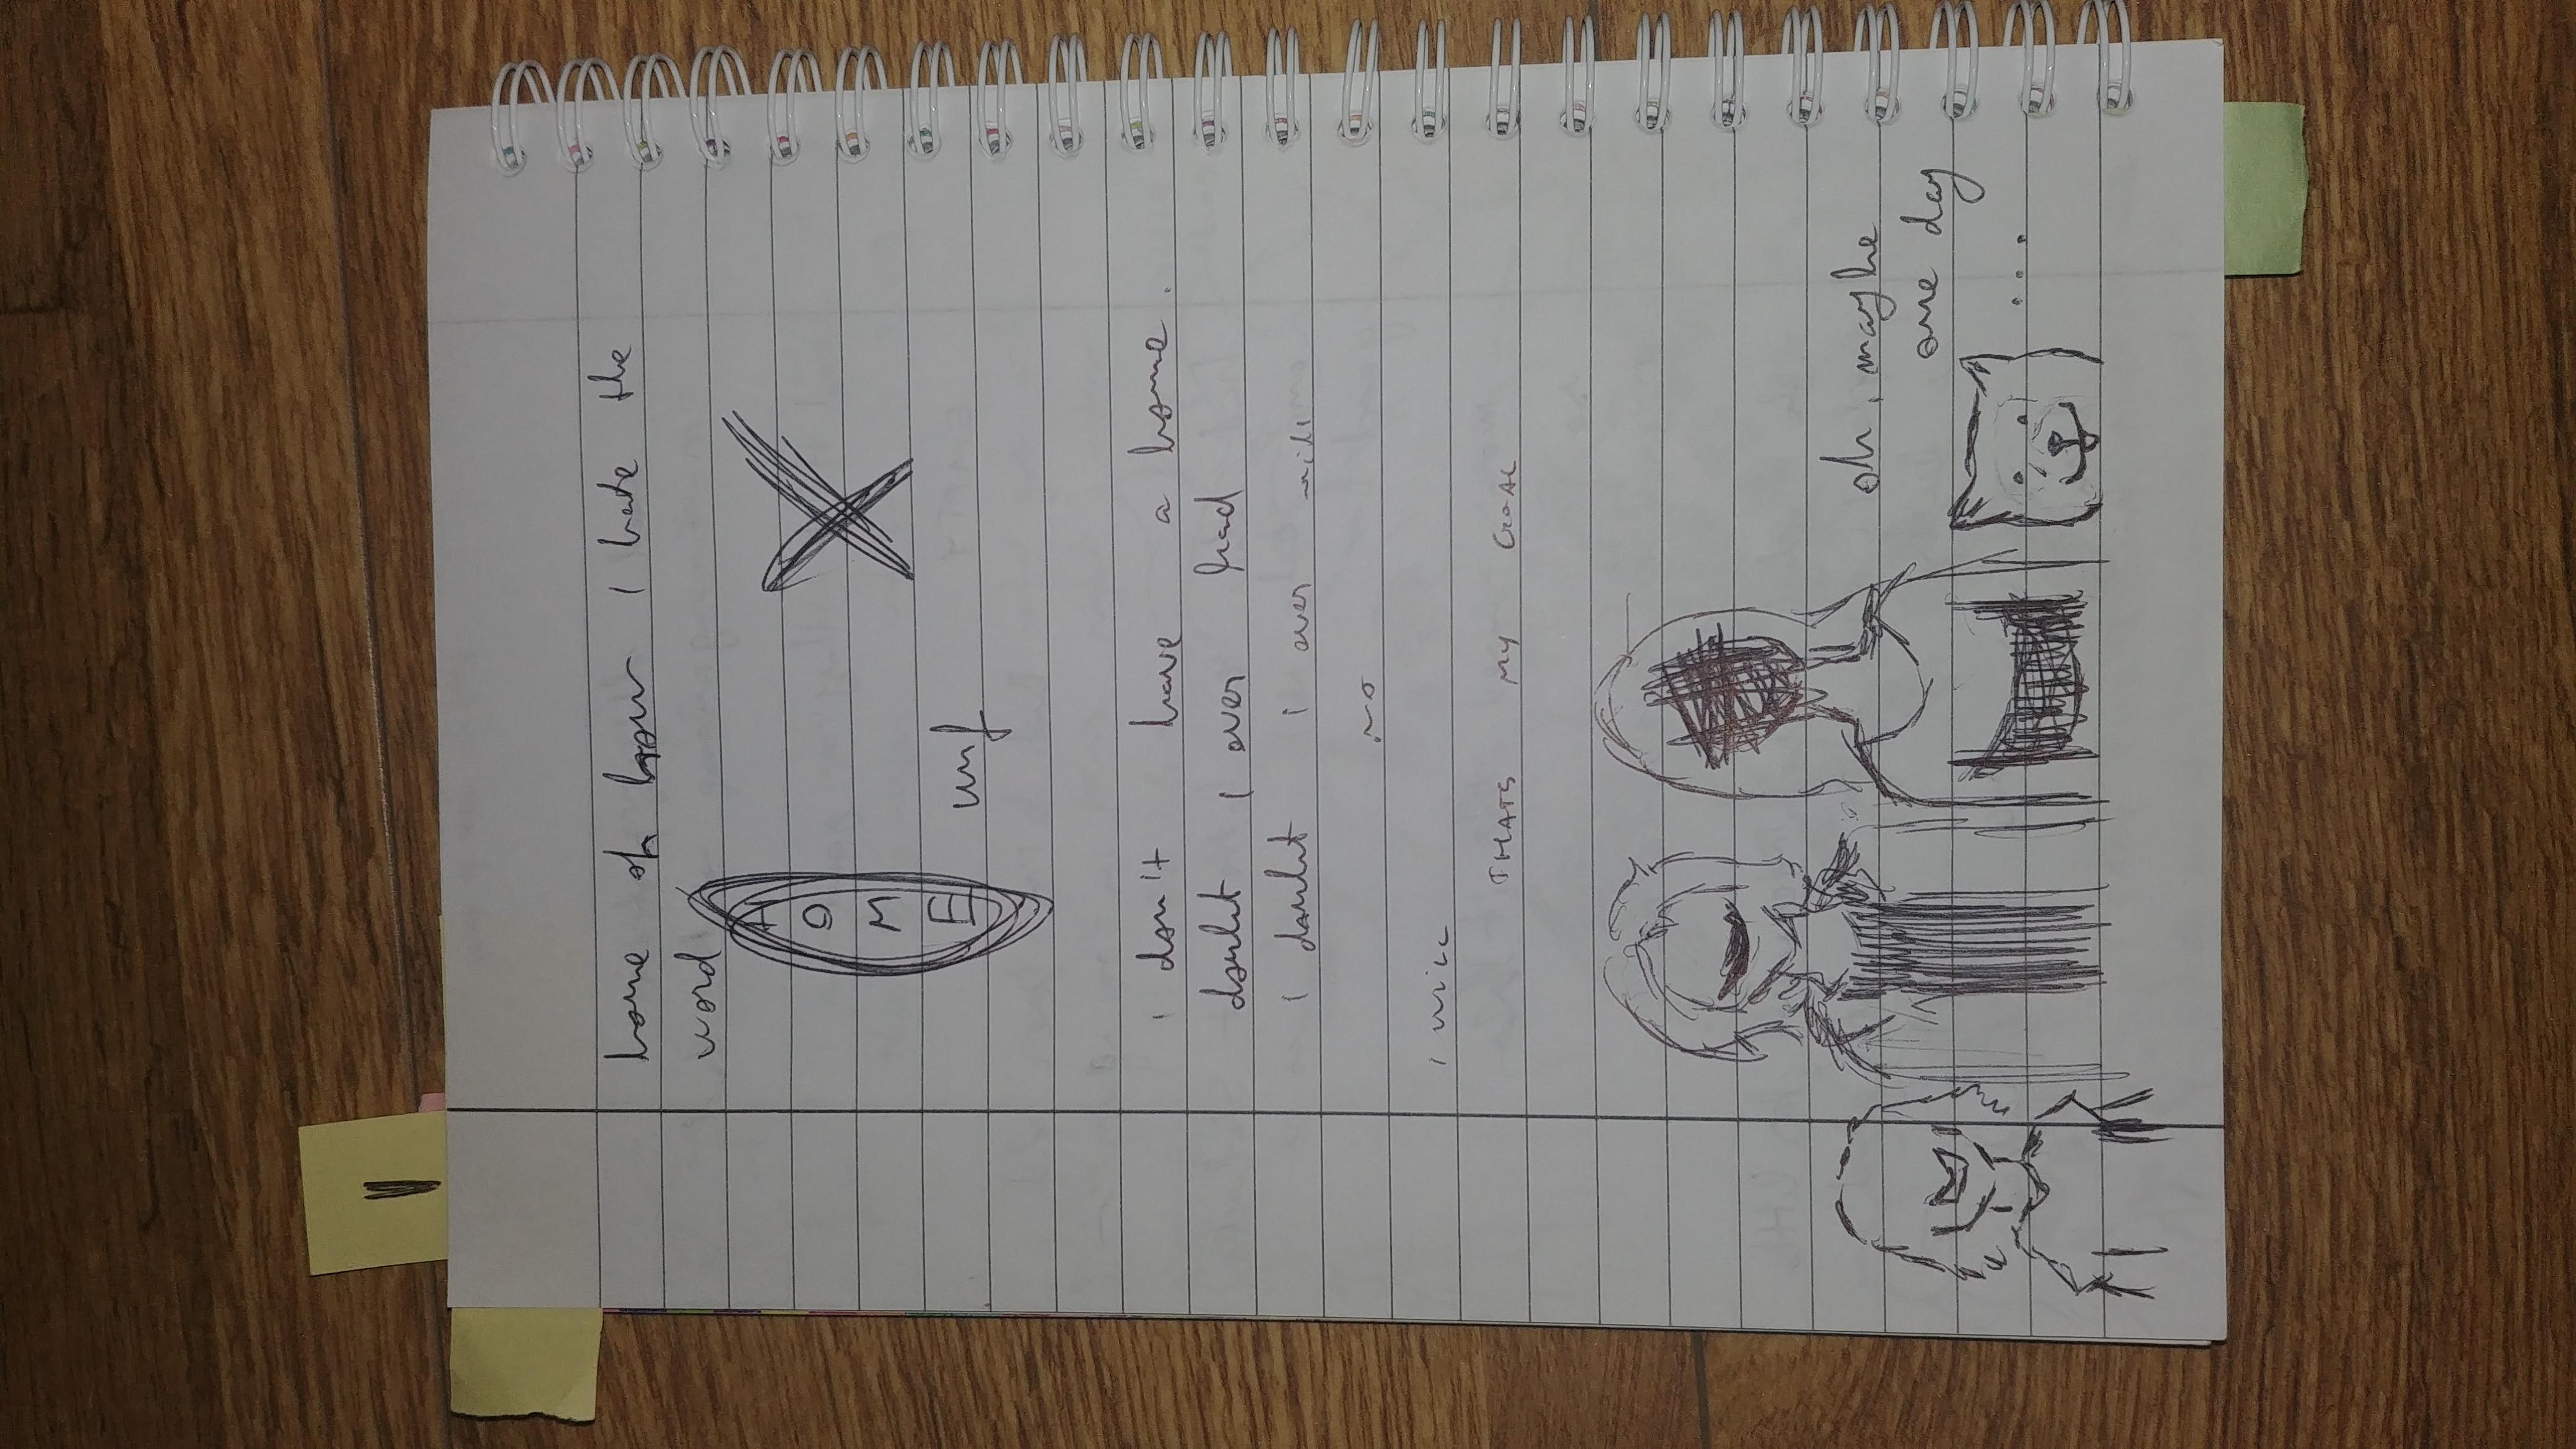 home oh how I hate the
word
H
O
M
E
i don't have a home.
doubt I ever had
i doubt i ever will
no
i will
THATS MY GOAL
oh, maybe
one day
...